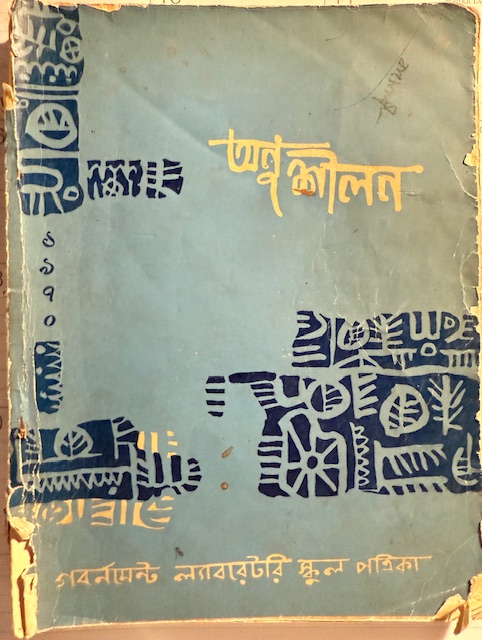 অনুশীলন
১
৯
৭
০
গবর্নমেন্ট ল্যাবরেটরি স্কুল পত্রিকা